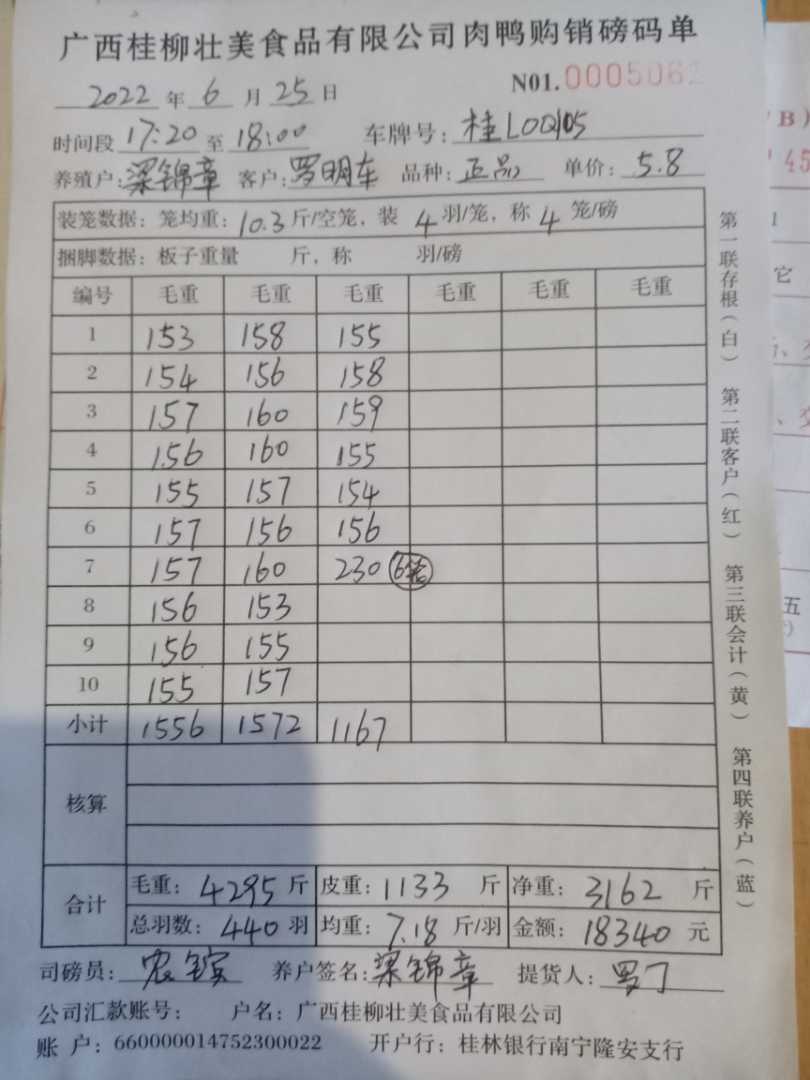 广西桂柳壮美食品有限公司肉鸭购销磅码单
2022 年 6 月 25 日 N01.000506
时间段 17:20 至 18:00 车牌号: 桂L0Q105
养殖户: 梁锦章 客户: 罗明车 品种: 正品 单价: 5.8
装笼数据: 笼均重: 10.3 斤/空笼, 装 4 羽/笼, 称 4 笼/磅
捆脚数据: 板子重量 斤, 称 羽/磅
编号 毛重 毛重 毛重 毛重 毛重 毛重
1 153 158 155
2 154 156 158
3 157 160 159
4 156 160 155
5 155 157 154
6 157 156 156
7 157 160 230 6笼
8 156 153
9 156 155
10 155 157
小计 1556 1572 1167
核算
合计 毛重: 4295 斤 皮重: 1133 斤 净重: 3162 斤
总羽数: 440 羽 均重: 7.18 斤/羽 金额: 18340 元
司磅员: 养户签名: 梁锦章 提货人: 罗丁
公司汇款账号: 户名: 广西桂柳壮美食品有限公司
账 户: 660000014752300022 开户行: 桂林银行南宁隆安支行
第一联存根(白) 第二联客户(红) 第三联会计(黄) 第四联养户(蓝)
B)
45
1
它
五